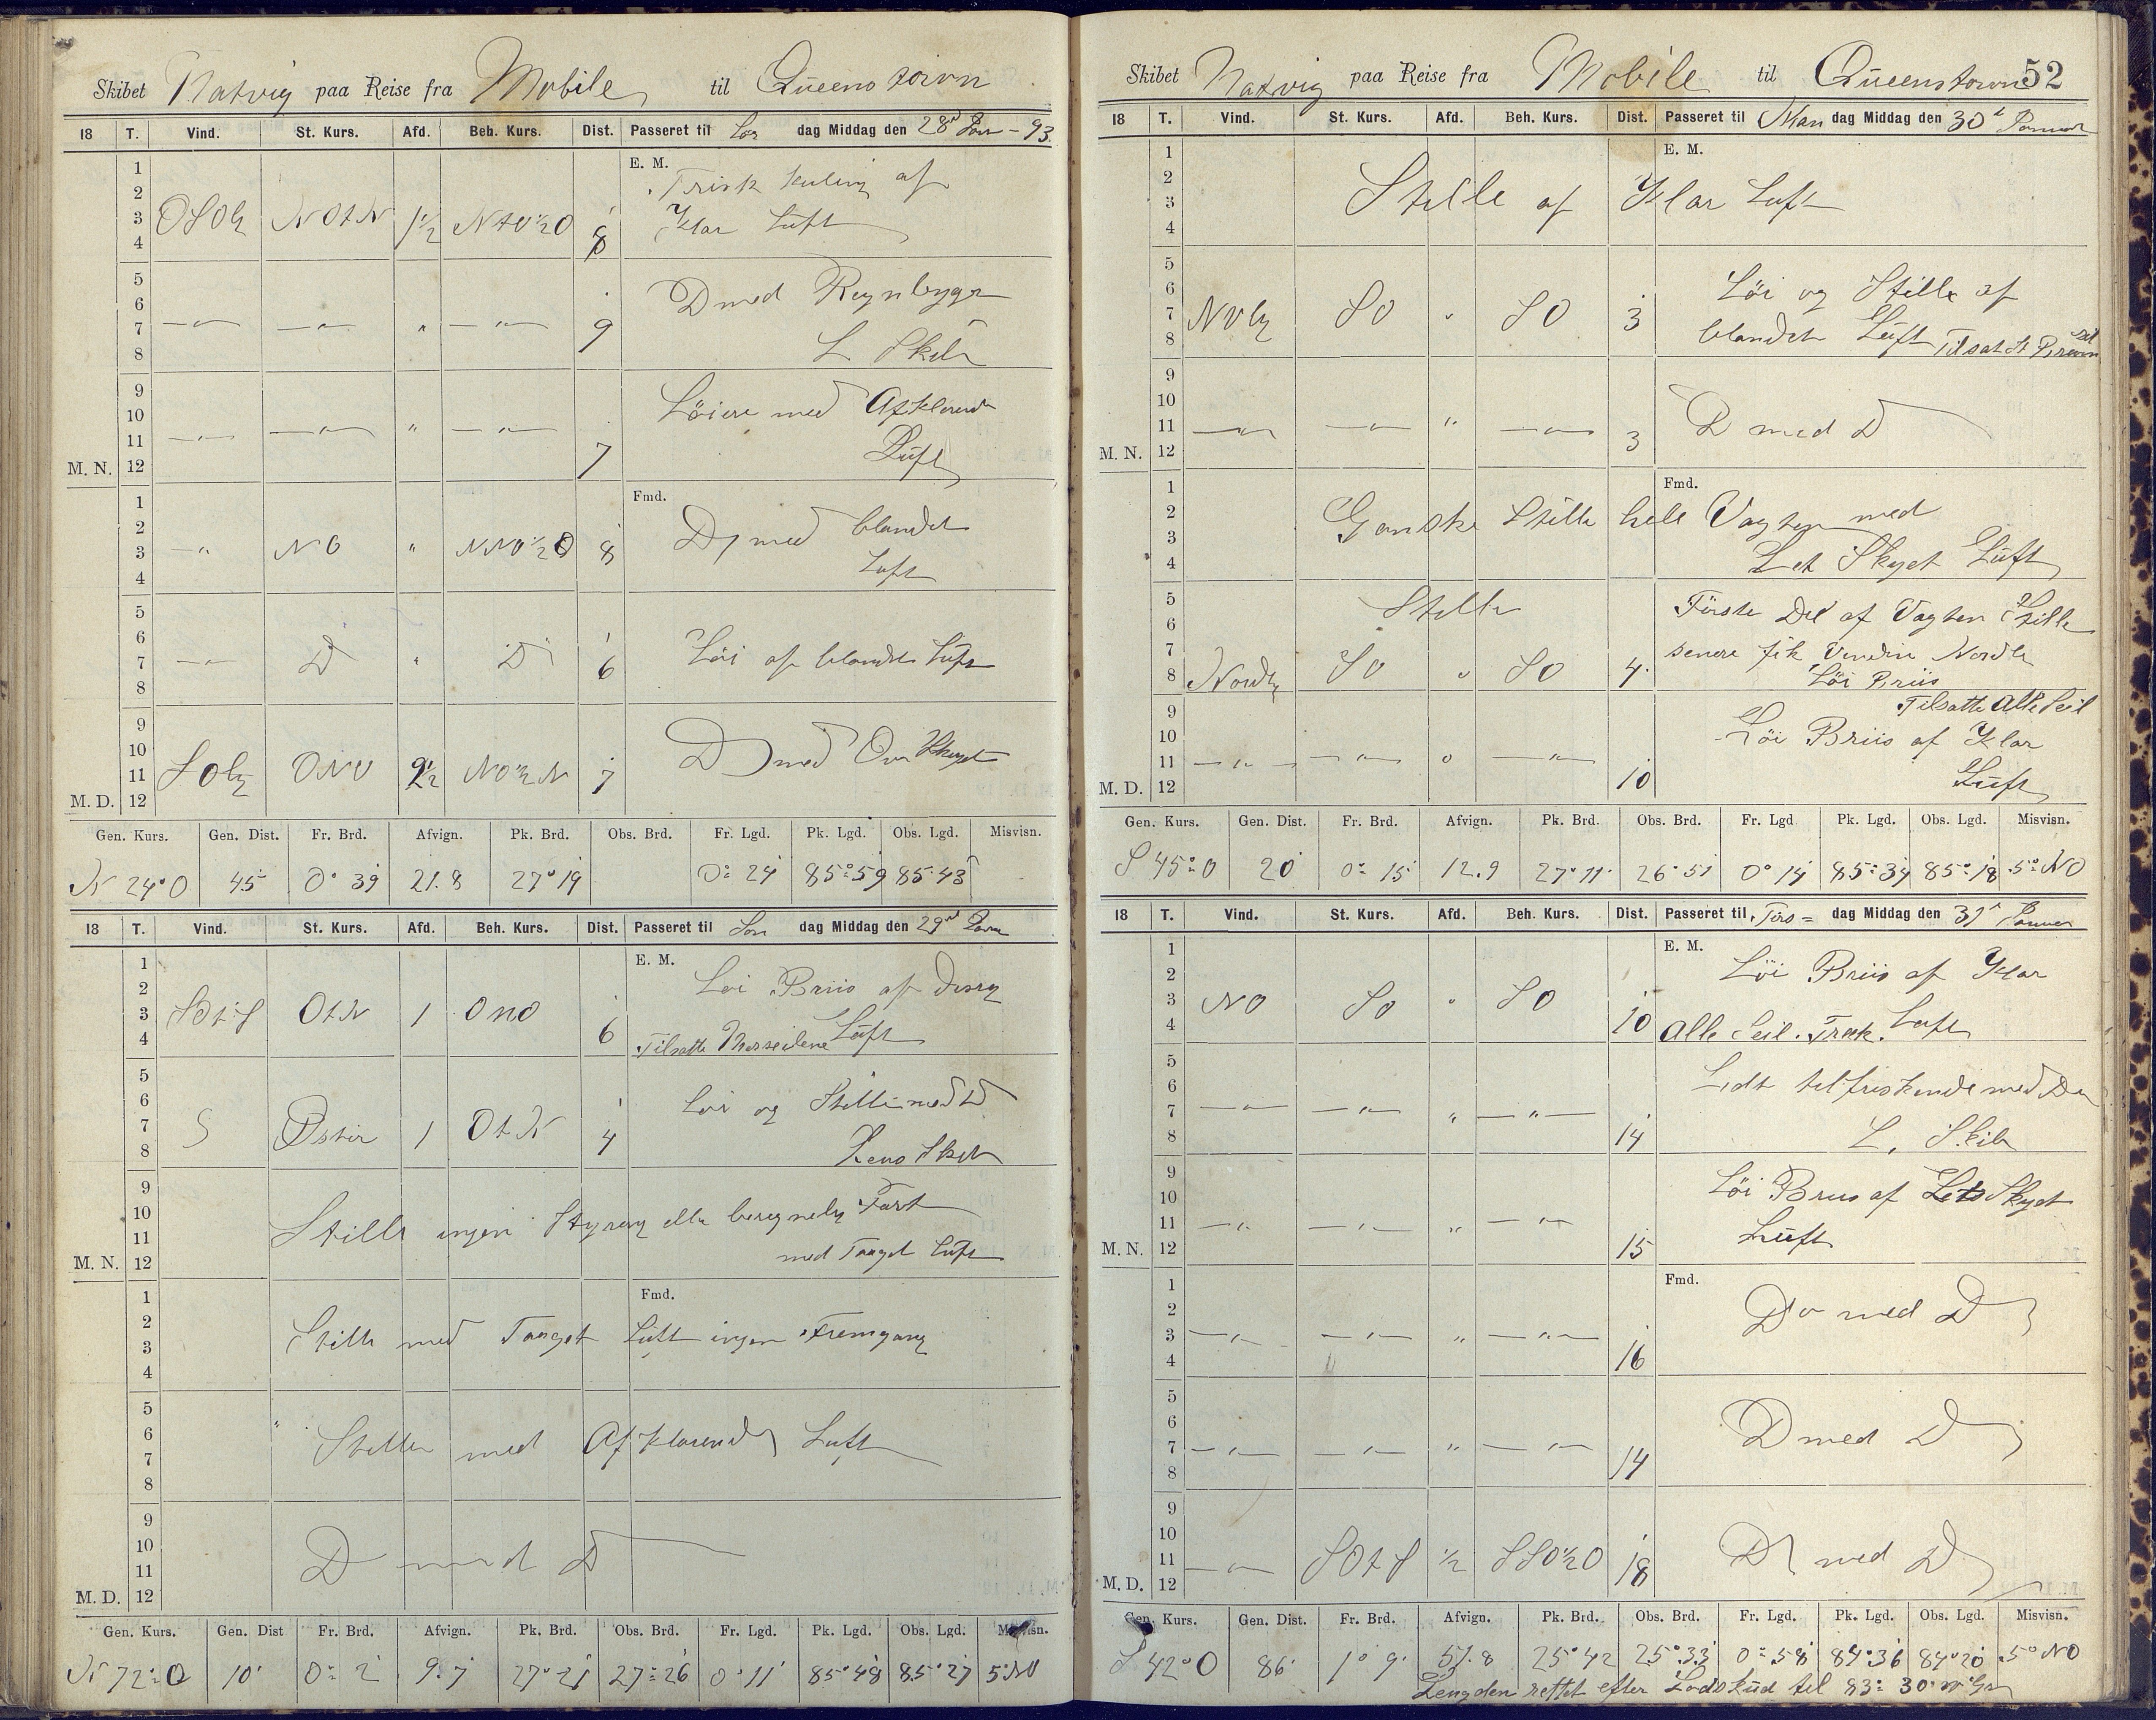 Skibet Natvig paa Reise fra Mobile til Queenstown
18 T. Vind. St. Kurs. Afd. Beh. Kurs. Dist. Passeret til Lør dag Middag den 28 Jan - 93
E. M.
1 2 3 4 OSOlg NOtN 1½ NtO½O 8 Frisk Kuling af
Klar Luft
5 6 7 8 —"— —"— " —"— 9 D med Regnbyger
L Skib
9 10 11 12 M. N. —"— —"— " —"— 7 Löiere med Afklarende
Luft
Fmd.
1 2 3 4 —"— NO " NNO½O 8 Do med blandet
Luft
5 6 7 8 —"— D " D 6 Löi af blandet Luft
9 10 11 12 M. D. SOlg ONO 2½ NO½N 7 D med Overskyet
Gen. Kurs. Gen. Dist. Fr. Brd. Afvign. Pk. Brd. Obs. Brd. Fr. Lgd. Pk. Lgd. Obs. Lgd. Misvisn.
N 24° O 45 0° 39 21.8 27° 19 0° 24 85° 59 85° 43
18 T. Vind. St. Kurs. Afd. Beh. Kurs. Dist. Passeret til Søn dag Middag den 29 Janu
E. M.
1 2 3 4 SOtS OtN 1 ONO 6 Löi Briis af disig
Tilsatte Merseilene Luft
5 6 7 8 S Østen 1 OtN 4 Löi og Stille med D
Lens Skib
9 10 11 12 M. N. Stille ingen Styring eller beregnelig Fart
med Taaget Luft
Fmd.
1 2 3 4 Stille med Taaget Luft ingen Fremgang
5 6 7 8 Stille med Afklarende Luft
9 10 11 12 M. D. D med D
Gen. Kurs. Gen. Dist Fr. Brd. Afvign. Pk. Brd. Obs. Brd. Fr. Lgd. Pk. Lgd. Obs. Lgd. Misvisn.
N 72° O 10 0° 2 9.7 27° 21 27° 26 0° 11 85° 48 85° 27 5° NO
Skibet Natvig paa Reise fra Mobile til Queenstown 52
18 T. Vind. St. Kurs. Afd. Beh. Kurs. Dist. Passeret til Man dag Middag den 30 Januar
E. M.
1 2 3 4 Stille af Klar Luft
5 6 7 8 NOlg SO " SO 3 Löi og Stille af
blandet Luft Tilsat
9 10 11 12 M. N. —"— —"— " —"— 3 D med D
Fmd.
1 2 3 4 Ganske Stille hele Vagten med
Let Skyet Luft
5 6 7 8 Stille Förste Del af Vagten Stille
senere fik Vinden Nordlig
Nordlg SO " SO 4 Löi Briis
Tilsatte Alle Seil
9 10 11 12 M. D. —"— —"— " —"— 10 Löi Briis af Klar
Luft
Gen. Kurs. Gen. Dist. Fr. Brd. Afvign. Pk. Brd. Obs. Brd. Fr. Lgd Pk. Lgd. Obs. Lgd. Misvisn.
S 45° O 20 0° 15 12.9 27° 11 26° 51 0° 14 85° 34 85° 18 5° NO
18 T. Vind. St. Kurs. Afd. Beh. Kurs. Dist. Passeret til Tirs = dag Middag den 31 Januar
E. M.
1 2 3 4 NO SO " SO 10 Löi Briis af Klar
Alle Seil. Træk. Luft
5 6 7 8 —"— —"— " —"— 14 Lidt tilfriskende med Do
L. Skib
9 10 11 12 M. N. —"— —"— " —"— 15 Löi Briis af Let Skyet
Luft
Fmd.
1 2 3 4 —"— —"— " —"— 16 Do med D
5 6 7 8 —"— —"— " —"— 14 D med D
9 10 11 12 M. D. —"— SOtS ½ SSO½O 18 D med D
Gen. Kurs. Gen. Dist. Fr. Brd. Afvign. Pk. Brd. Obs. Brd. Fr. Lgd. Pk. Lgd. Obs. Lgd. Misvisn.
S 42° O 86 1° 9 57.8 25° 42 25° 33 0° 58 84° 36 84° 20 5° NO
Lengden rettet efter Lodskud til 83° 30